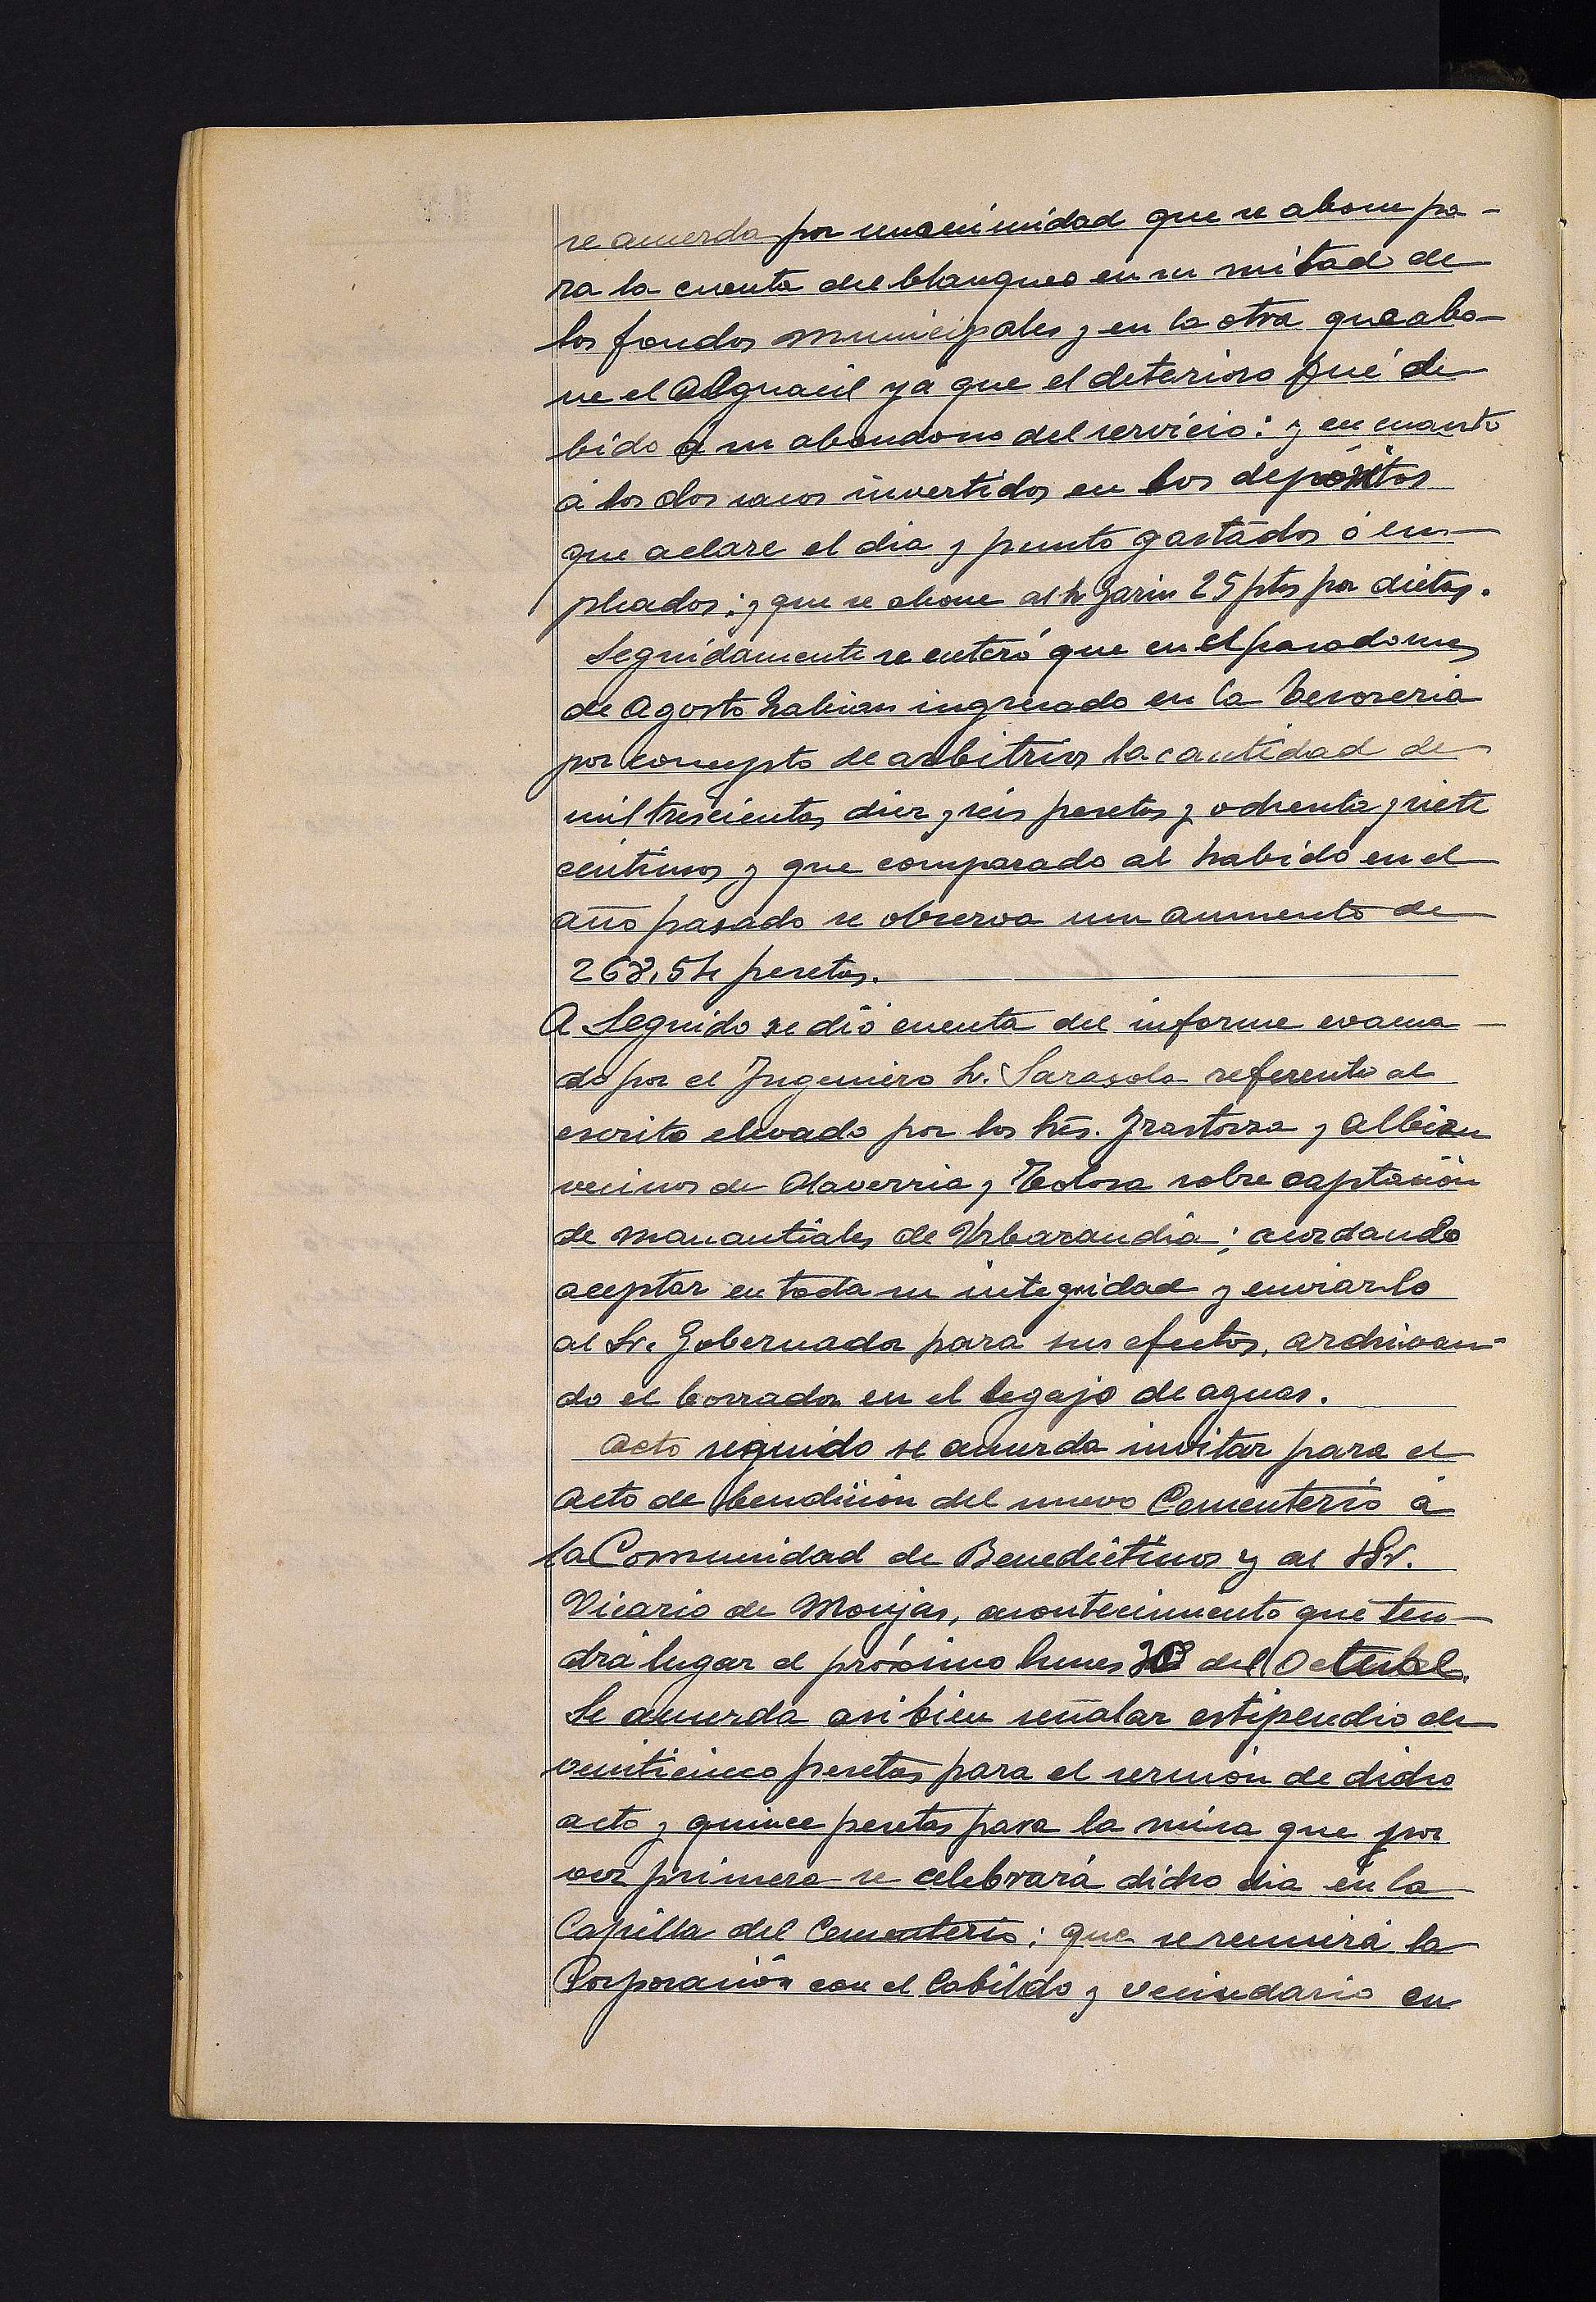 se acuerda por unanimidad que se abone pa-
ra la cuenta del blanqueo en su mitad de
los fondos municipales y en la otra que abo-
ne el Alguacil ya que el deterioro fué de
bido á su abandono del servicio: y en cuanto
á los dos sacos invertidos en los depósitos
que aclare el dia y punto gastados ó em-
pleados: y que se abone al Sr Garin 25 pts por dietas.
Seguidamente se enteró que en el pasado mes
de Agosto habian ingresado en la tesoreria
por concepto de arbitrios la cantidad de
mil trescientas diez y seis pesetas y ochenta y siete
centimos y que comparado al habido en el
año pasado se observa un aumento de
268,54 pesetas.
A Seguido se dió cuenta del informe evacua-
do por el Ingeniero Sr. Sarasola referente al
escrito elevado por los Srēs. Irastorza y Albizu
vecinos de Olaverria y Tolosa sobre captación
de manantiales de Urbarandia; acordando
aceptar en toda su integridad y enviarlo
al Sr. Gobernador para sus efectos, archivan-
do el borrador en el legajo de aguas.
Acto seguido se acuerda invitar para el
acto de bendición del nuevo Cementerio á
la Comunidad de Benedictinos y al Sr.
Vicario de Monjas, acontecimiento que ten-
drá lugar el próximo lunes del
Se acuerda asi bien señalar estipendio de
veinticinco pesetas para el sermón de dicho
acto y quince pesetas para la misa que por
vez primera se celebrará dicho dia en la
Capilla del Cementerio; que se reunirá la
Corporación con el Cabildo y vecindario en